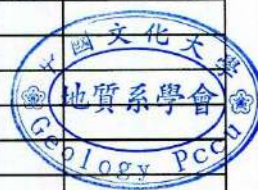 中國文化大學
地質系學會
Geology Pccu